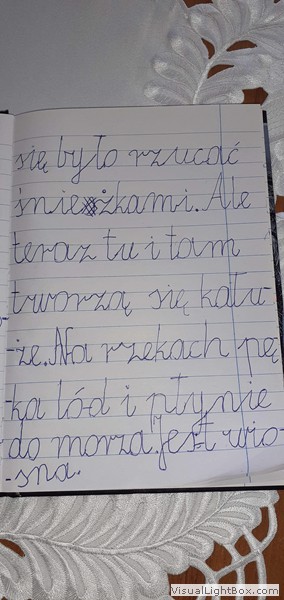 się było rzucać
śnieżkami. Ale
teraz tu i tam
tworzą się kału-
-że. Na rzekach pę
-ka lód i płynie
do morza. Jest wio-
-sna.
VisualLightBox.com